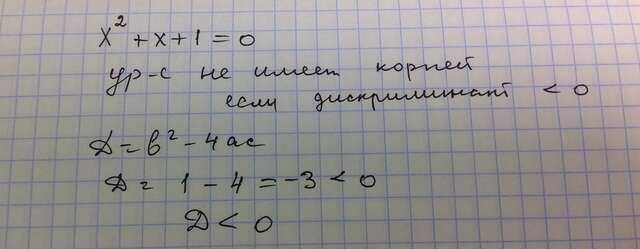 x² + x + 1 = 0
ур-е не имеет корней
если дискриминант < 0
D = b² - 4ac
D = 1 - 4 = -3 < 0
D < 0